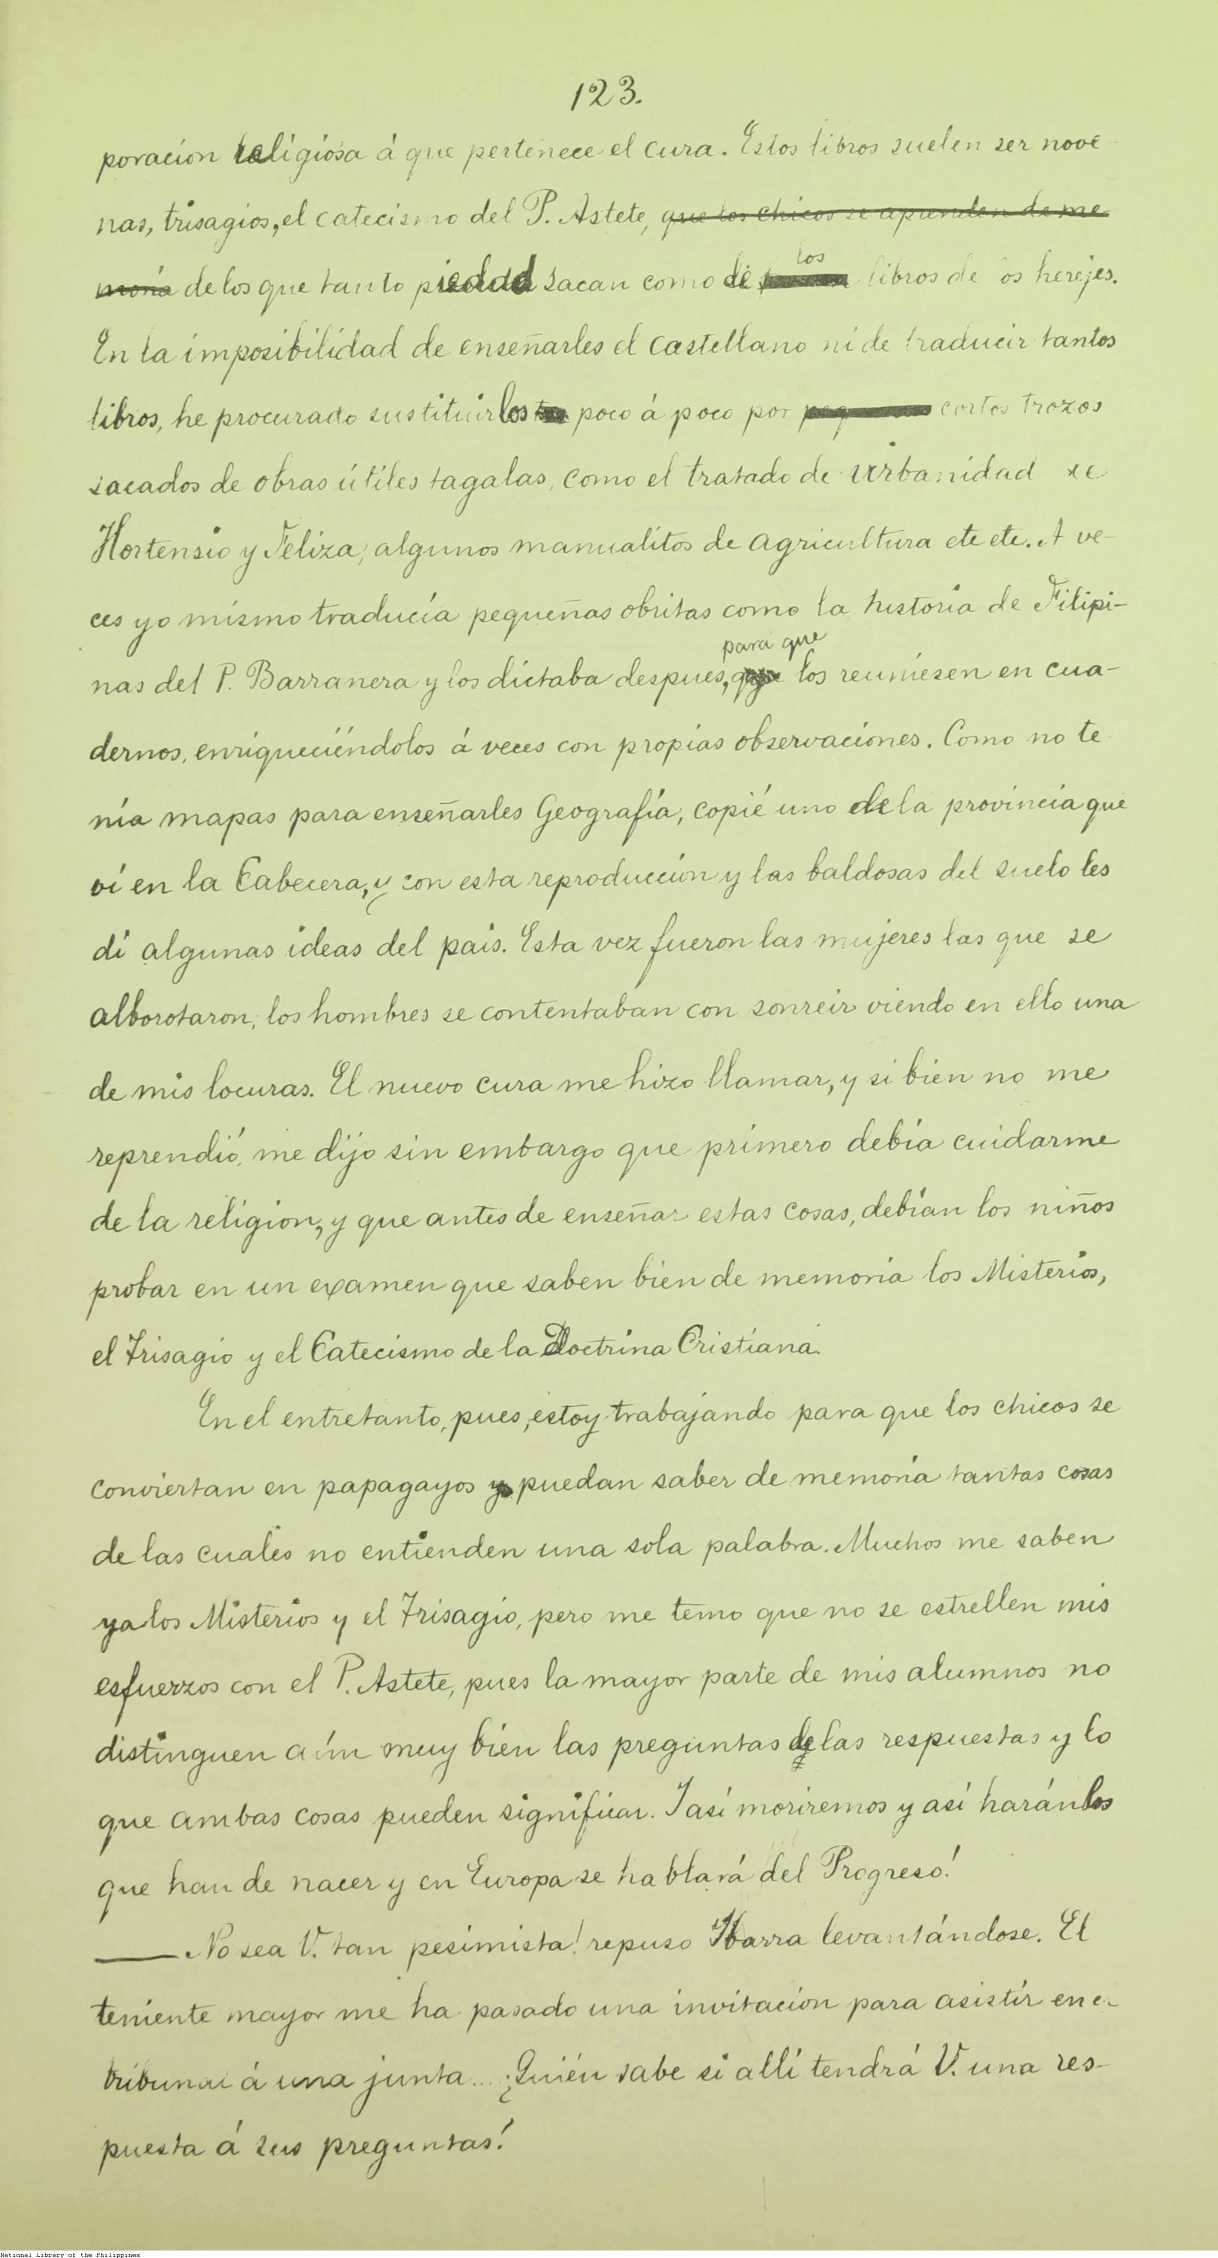 123.
poracion religiosa á que pertenece el cura. Estos libros suelen ser nove
nas, trisagios, el catecismo del P. Astete, que los chicos se aprenden de me
moria de los que tanto piedad sacan como de los libros de los herejes.
En la imposibilidad de enseñarles el castellano ni de traducir tantos
libros, he procurado sustituirlos poco á poco por cortos trozos
sacados de obras útiles tagalas, como el tratado de urbanidad de
Hortensio y Feliza, algunos manualitos de agricultura etc etc. A ve-
ces yo mismo traducía pequeñas obritas como la historia de Filipi-
nas del P. Barranera y los dictaba despues, para que los reuniesen en cua-
dernos, enriqueciéndolos á veces con propias observaciones. Como no te
nía mapas para enseñarles Geografía, copié uno de la provincia que
ví en la Cabecera, y con esta reproducción y las baldosas del suelo les
dí algunas ideas del país. Esta vez fueron las mujeres las que se
alborotaron, los hombres se contentaban con sonreir viendo en ello una
de mis locuras. El nuevo cura me hizo llamar, y si bien no me
reprendió, me dijo sin embargo que primero debía cuidarme
de la religion, y que antes de enseñar estas cosas, debían los niños
probar en un examen que saben bien de memoria los Misterios,
el Trisagio y el Catecismo de la Doctrina Cristiana.
En el entretanto, pues, estoy trabajando para que los chicos se
conviertan en papagayos y puedan saber de memoria tantas cosas
de las cuales no entienden una sola palabra. Muchos me saben
ya los Misterios y el Trisagio, pero me temo que no se estrellen mis
esfuerzos con el P. Astete, pues la mayor parte de mis alumnos no
distinguen aún muy bien las preguntas de las respuestas y lo
que ambas cosas pueden significar. I así moriremos y así harán los
que han de nacer y en Europa se hablará del Progreso!
— No sea V. tan pesimista! repuso Ibarra levantándose. El
teniente mayor me ha pasado una invitacion para asistir en el
tribunal á una junta... ¿Quién sabe si allí tendrá V. una res-
puesta á sus preguntas!
National Library of the Philippines